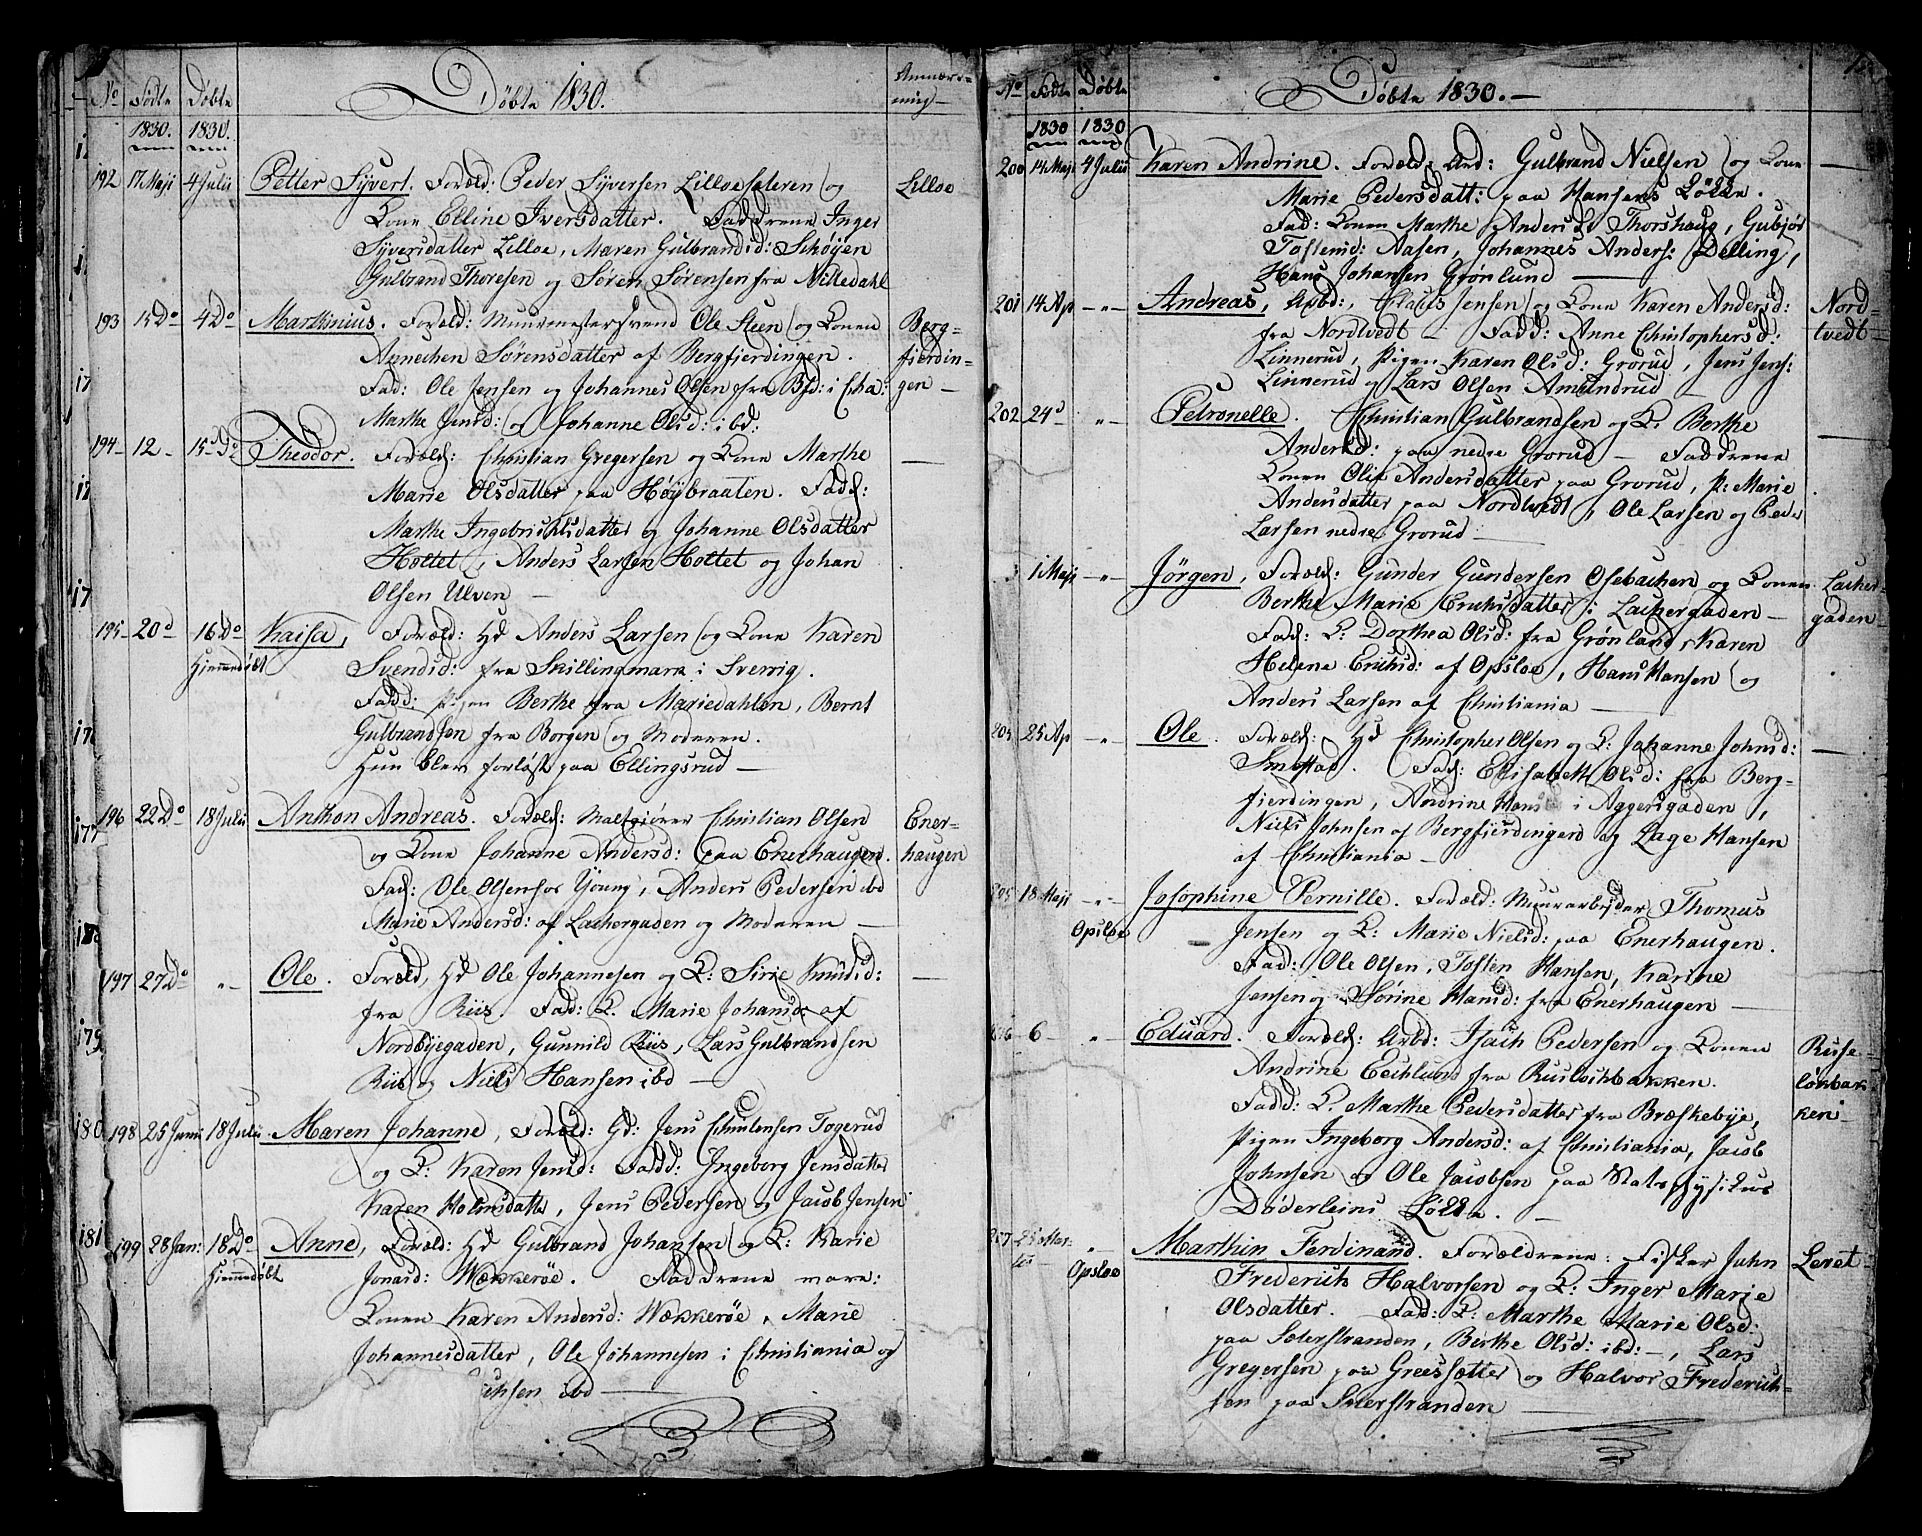 No Fødte Døbte Døbte 1830. Anmærk-
ning
1830. 1830.
192 17 Maji 4 Julii Petter Syvert. Foræld: Peder Syversen Lilloesæteren og Lilloe
Kone Elline Iversdatter. Faddrene Inger
Syversdatter Lilloe, Maren Gulbrandsd: Schøyen
Gulbrand Thoresen og Søren Sørensen fra Nittedahl
193 15 Do 4 Do Marthinius. Foræld: Muurmestersvend Ole Steen og Konen Berg-
Annechen Sørensdatter af Bergfjerdingen. fjerdin-
Fad: Ole Jensen og Johannes Olsen fra Bfd: i Cha: gen
Marthe Jensd: og Johanne Olsd: ibd:
194 12 15 Do Theodor. Foræld: Christian Gregersen og Kone Marthe
Marie Olsdatter paa Høybraaten. Fad:
Marthe Ingebrichtsdatter og Johanne Olsdatter
Holtet, Anders Larsen Holtet og Johan
Olsen Ulven
195 20 d 16 Do Kaisa, Foræld: Anders Larsen og Kone Karen
Hjemmedøbt Svendsd: fra Skillingmark i Sverrig.
Fadd: Pigen Berthe fra Mariedahlen, Bernt
Gulbrandsen fra Borgen og Moderen.
Hun blev forløst paa Ellingsrud
196 22 Do 18 Julii Anthon Andreas. Foræld: Maltgiører Christian Olsen Ener-
og Kone Johanne Andersd: paa Enerhaugen. haugen
Fad: Ole Olsen hos Young, Anders Pedersen ibd
Marie Andersd: af Lachergaden og Moderen
197 27 Do "- Ole. Foræld, Ole Johannesen og K: Sirie Knudsd:
fra Riis. Fad: K. Marie Johansd: af
Nordbyegaden, Gunnild Riis, Lars Gulbrandsen
Riis og Niels Hansen ibd
198 25 Junii 18 Julii Maren Johanne, Foræld: Gd: Jens Christensen Togerud
og K: Karen Jensd: Fadd: Ingeborg Jensdatter
Karen Holmsdatter, Jens Pedersen og Jacob Jensen
199 28 Jan: 18 Do Anne, Foræld: Gulbrand Johansen og K: Karie
Hjemmedøbt Jonasd: Wækkerøe. Faddrene vare:
Konen Karen Andersd: Wækkerøe, Marie
Johannesdatter, Ole Johannesen i Christiania og
ibd
17
17
17
17
177
178
179
180
181
No Fødte Døbte Døbte 1830.
1830 1830
200 14 Maji 4 Julii Karen Andrine. Foræld: Arb: Gulbrand Nielsen og Kone
Marie Pedersdatt: paa Hansens Løkke.
Fad: Konen Marthe Andersd: Thorshaug, Gubjør
Tostensd: Aasen, Johannes Anders: Delling,
Hans Johansen Grønlund
201 14 Ap "- Andreas, Arbd:, Claus Jensen og Kone Karen Andersd: Nord-
fra Nordtvedt Fadd: Anne Christophersd: tvedt
Linnerud, Pigen Karen Olsd: Grorud, Jens Jens:
Linnerud og Lars Olsen Amundrud
202 24 d "- Petronelle. Christian Gulbrandsen og K. Berthe
Andersd: paa nedre Grorud Faddrene
Konen Olia Andersdatter paa Grorud, P: Marie
Andersdatter paa Nordtvedt, Ole Larsen og Peder
Larsen nedre Grorud
1 Maji "- Jørgen, Foræld: Gunder Gundersen Osebachen og Konen Lacher-
Berthe Marie Erichsdatter i Lachergaden gaden
Fad: K: Dorthea Olsd: fra Grønland, Karen
Helene Erichsd: af Opsloe, Hans Hansen og
Anders Larsen af Christiania
25 Ap "- Ole. Foræld: Christopher Olsen og K: Johanne Johnsd:
Smestad. Fad: Elisabeth Olsd: fra Berg-
fjerdingen, Andrine i Aggersgaden,
Niels Johnsen af Bergfjerdingen og Lage Hansen
af Christiania
205 18 Maji "- Josephine Pernille. Foræld: Muurarbejder Thomas
Opsloe Jensen og K: Marie Nielsd: paa Enerhaugen.
Fad: Ole Olsen, Tosten Hansen, Karine
Jensen og Sorine Hansd: fra Enerhaugen
6 "- Eduard. Foræld: Arbd: Isach Pedersen og Konen Ruse-
Andrine Eechlund fra Rusløchbakken. løkbak
Fadd: K. Marthe Pedersdatter fra Bræskebye, ken
Pigen Ingeborg Andersd: af Christiania, Jacob
Johnsen og Ole Jacobsen paa Statsphysikus
Døderleins Løkke.
"- Marthin Ferdinand. Forældrene: Fisker John Leret
Opsloe Frederich Halvorsen og K: Inger Marie
Olsdatter. Fad: K: Marthe Marie Olsd:
paa Sæterstranden, Berthe Olsd: ibd:, Lars
Gregersen paa Greessætter og Halvor Frederich-
sen paa Sæterstranden